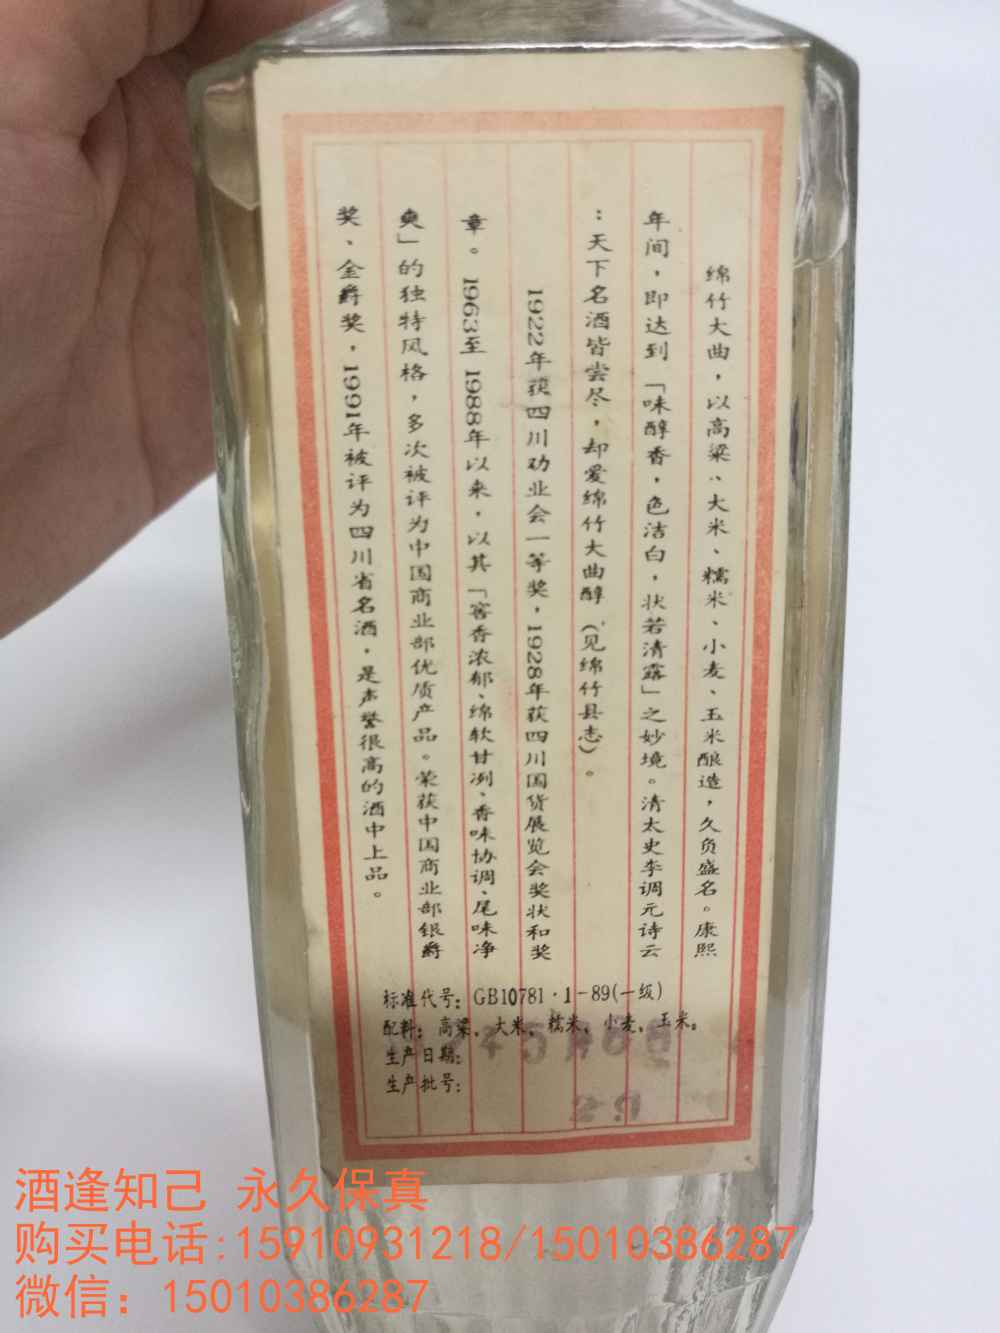 绵竹大曲，以高粱、大米、糯米、小麦、玉米酿造，久负盛名。康熙
年间，即达到「味醇香，色洁白，状若清露」之妙境。清太史李调元诗云
：天下名酒皆尝尽，却爱绵竹大曲醇（见绵竹县志）。
1922年获四川劝业会一等奖，1928年获四川国货展览会奖状和奖
章。1963至1988年以来，以其「窖香浓郁、绵软甘冽、香味协调、尾味净
爽」的独特风格，多次被评为中国商业部优质产品。荣获中国商业部银爵
奖、金爵奖，1991年被评为四川省名酒，是声誉很高的酒中上品。
标准代号：GB10781·1-89(一级)
配料：高粱、大米、糯米、小麦、玉米。
生产日期：
生产批号：
酒逢知己 永久保真
购买电话:15910931218/15010386287
微信：15010386287